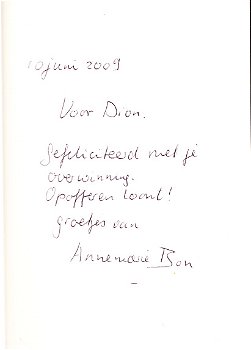 10 juni 2009
Voor Dion.
Gefeliciteerd met je
overwinning.
Opofferen loont!
groetjes van
Annemarie Bon